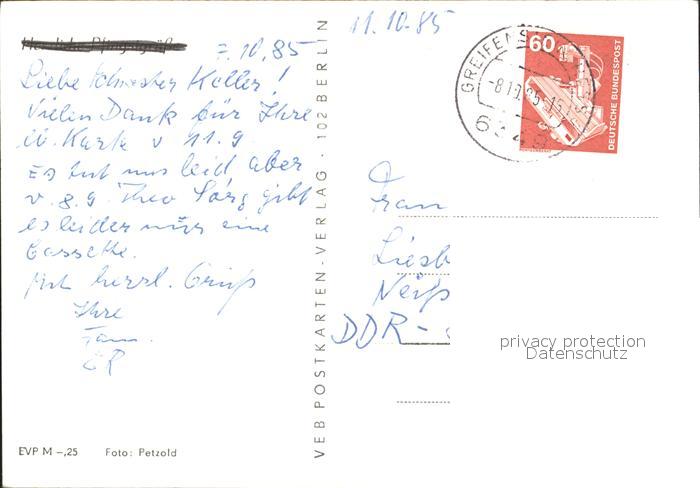 11.10.85
7.10.85
Liebe Schwester Keller!
Vielen Dank für Ihre
lb. Karte v 11.9
Es tut uns leid, aber
v. 8.9. Theo Sorg gibt
es leider nur eine
Cassette.
Mit herzl. Gruß
Ihre
Fam.
VEB POSTKARTEN-VERLAG · 102 BERLIN
GREIFENS
60
DEUTSCHE BUNDESPOST
Frau
Liesb
Neiß
DDR-
privacy protection
Datenschutz
EVP M –,25 Foto: Petzold